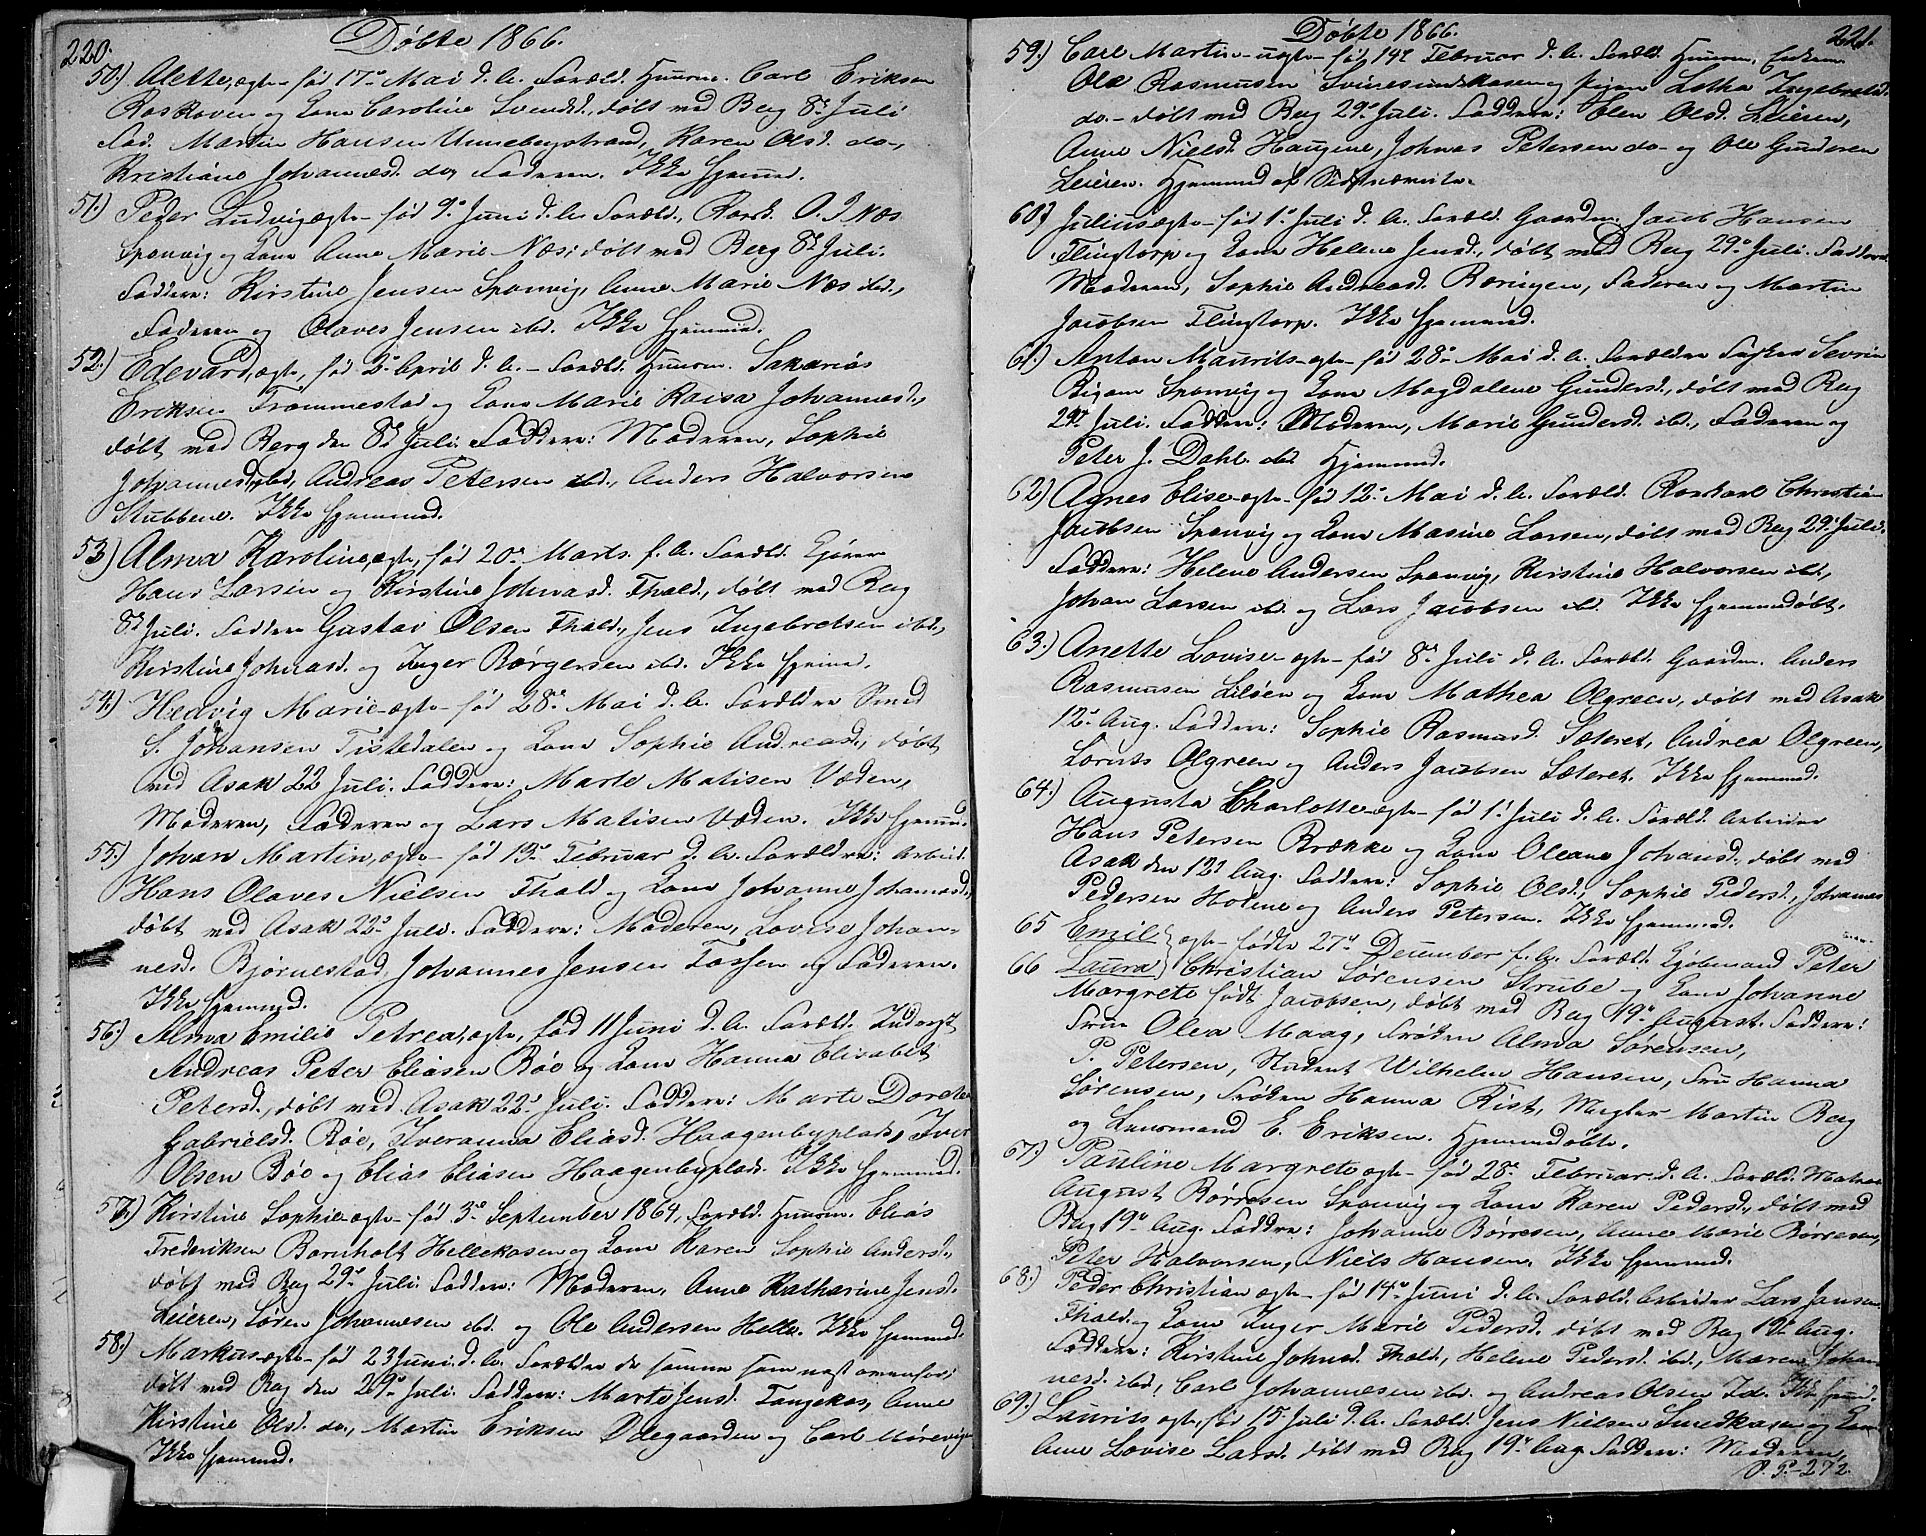 220.
Døbte 1866.
50.) Alette, ægte - fød 17de Mai d. A. Foræld. Huusm. Carl Eriksen
Røskoven og Kone Caroline Svendsd., døbt ved Berg 8de Juli
Fad. Martin Hansen Unnebergstrand, Karen Olsd. do.,
Kristiane Johannesd. do, Faderen. Ikke hjemmed.
51.) Peder Ludvig ægte - fød 9de Juni d. A. Foræld. O. J. Næs
Sponvig og Kone Anne Marie Næs, døbt ved Berg 8de Juli.
Faddere: Kirstine Jensen Sponvig, Anne Marie Næs ibd.,
Faderen og Olaves Jensen ibd. Ikke hjemmed.
52.) Edevard, ægte, fød 2de April d. A. - Foræld. Huusm. Sakarias
Eriksen Trommestad og Kone Marie Raisa Johannesd.,
døbt ved Berg den 8de Juli. Faddere: Moderen, Sophie
Johannesd. ibd, Andreas Petersen ibd., Anders Halvorsen
Stubbene. Ikke hjemmed.
53) Alma Karoline, ægte, fød 20de Marts f. A. Foræld. Ejører
Hans Larsen og Kirstine Johnasd. Thald, døbt ved Berg
8de Juli. Faddere Gustav Olsen Thald, Jens Ingebretsen ibd.,
Kirstine Johnasd. og Inger Børgersen ibd. Ikke hjemmed.
54.) Hedvig Marie - ægte - fød 28de Mai d. A. Forældre Smed
S. Johansen Tistedalen og Kone Sophie Andreasd., døbt
ved Asak 22 Juli. Faddere: Marte Matisen Væden,
Moderen, Faderen og Lars Matisen Væden. Ikke hjemmed.
55.) Johan Martin, ægte - fød 13de Februar d. A. Forældre: Arbeid.
Hans Olaves Nielsen Thald og Kone Johanne Johannesd.,
døbt ved Asak 22de Juli. Faddere: Moderen, Lovise Johan-
nesd. Bjørnestad, Johannes Jensen Tossen og Faderen.
Ikke hjemmed.
56.) Alma Emilie Petrea, ægte, fød 11 Juni d. A. Foræld. Inderst
Andreas Peter Eliasen Bøe og Kone Hanna Elisabet
Petersd., døbt ved Asak 22de Juli. Faddere: Marte Dorethea
Gabrielsd. Bøe, Iveranna Eliasd. Haagenbyplads, Iver
Olsen Bøe og Elias Eliasen Haagenbyplads. Ikke hjemmed.
57.) Kirstine Sophie - ægte - fød 3de September 1864, Foræld. Huusm. Elias
Frederiksen Bornholt Hellekasen og Kone Karen Sophie Andersd.,
døbt ved Berg 29de Juli. Faddere: Moderen, Anne Katharine Jensd.
Leieren, Søren Johannesen ibd og Ole Andersen Helle. Ikke hjemmed.
58.) Markus - ægte - fød 23 Juni d. A. Forældre de samme som næst ovenfor,
døbt ved Berg den 29de Juli. Faddere: Marte Jensd. Tangekas, Anne
Kirstine Olsd. do., Martin Eriksen Ødegaarden og Carl
Ikke hjemmed.
221.
Døbte 1866.
59.) Carl Martin - uægte - fød 14de Februar d. A. Foræld. Huusm, Enkem.
Ole Rasmussen Svinesundskasen og Pigen Lotha Ingebretsd.
do. - døbt ved Berg 29de Juli. Faddere: Elen Olsd. Leieren,
Anne Nielsd. Haugene, Johnas Petersen do - og Ole Gundersen
Leieren. Hjemmed af
60) Julius - ægte - fød 1de Juli d. A. Foræld. Gaardm. Jacob Hansen
Flingtorp og Kone Helene Jensd., døbt ved Berg 29de Juli. Faddere
Moderen, Sophie Andreasd. Roningen, Faderen og Martin
Jacobsen Flingtorp. Ikke hjemmed.
61.) Anton Maurits - ægte - fød 28de Mai d. A. Forældre Severin
Bigom Sponvig og Kone Magdalene Gundersd., døbt ved Berg
29de Juli. Faddere: Moderen, Marie Gundersd. ibd., Faderen og
Peter J. Dahl ibd. Hjemmed.
62) Agnes Elise - ægte - fød 12de Mai d. A. Foræld. Christian
Jacobsen Sponvig og Kone Masine Larsen, døbt ved Berg 29de Juli.
Faddere: Helene Andersen Sponvig, Kirstine Halvorsen ibd.,
Johan Larsen ibd og Lars Jacobsen ibd. Ikke hjemmedøbt.
63.) Anette Lovise - ægte - fød 8de Juli d. A. Foræld. Gaardm. Anders
Rasmusen Liløen og Kone Mathea Olgreen, døbt ved Asak
12de Aug. Faddere: Sophie Rasmusd. Sæteret, Andrea Olgreen,
Lornts Olgreen og Anders Jacobsen Sæteret. Ikke hjemmed.
64.) Augusta Charlotte - ægte - fød 1de Juli d. A. Foræld. Arbeider
Hans Petersen Brække og Kone Oleane Johansd. døbt ved
Asak den 12de Aug. Faddere: Sophie Olsd., Sophie Pedersd., Johannes
Pedersen Holene og Anders Petersen. Ikke hjemmed.
65 Emil
66 Laura } ægte - fødte 27de December f. A. Foræld. Kjøbmand Peter
Christian Sørensen Strube og Kone Johanne
Margrete født Jacobsen, døbt ved Berg 19de August. Faddere:
Fru Olea Maag, Frøken Alma Sørensen,
P. Petersen, Student Wilhelm Hansen, Fru Hanna
Sørensen, Frøken Hanna Rist, Mægler Martin Berg
og Lensmand E. Eriksen. Hjemmedøbte.
67.) Pauline Margrete ægte - fød 28de Februar d. A. Foræld. Matros
August Børresen Sponvig og Kone Karen Pedersd., døbt ved
Berg 19de Aug. Faddere: Johanne Børresen, Anne Marie Børresen,
Peter Halvorsen, Niels Hansen. Ikke hjemmed.
68.) Peder Christian ægte - fød 14de Juni d. A. Foræld. Arbeider Lars Jansen
Thald og Kone Inger Marie Pedersd. døbt ved Berg 19de Aug.
Faddere: Kirstine Johnsd. Thald, Helene Pedersd. ibd., Maren Johan-
nesd. ibd, Carl Johannesen ibd. og Andreas Olsen Id. Ikke hjemmed.
69.) Laurits ægte, fød 15 Juli d. A. Foræld. Jens Nielsen Smedkasen og Kone
Anne Lovise Larsd. døbt ved Berg 19de Aug. Faddere: Moderen,
P. P. - 272.